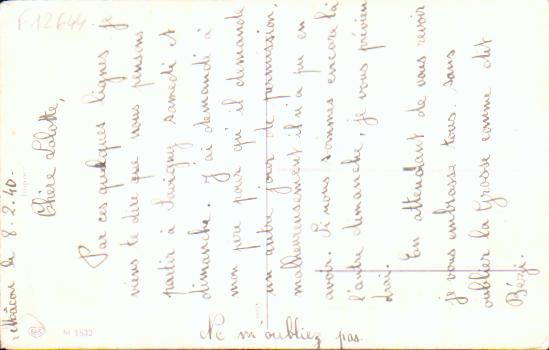 F.12644
Mâcon le 8.2.40.
Chère Lolotte,
Par ces quelques lignes je
viens te dire que nous pensons
partir à Savigny samedi et
dimanche. J'ai demandé à
mon père pour qu'il demande
un autre jour de permission,
malheureusement il n'a pu en
avoir. Si nous sommes encore là
l'autre dimanche, je vous prévien
drai. En attendant de vous revoir
je vous embrasse tous. sans
oublier la Grosse comme dit
Bézi.
Ne m'oubliez pas.
M 1832